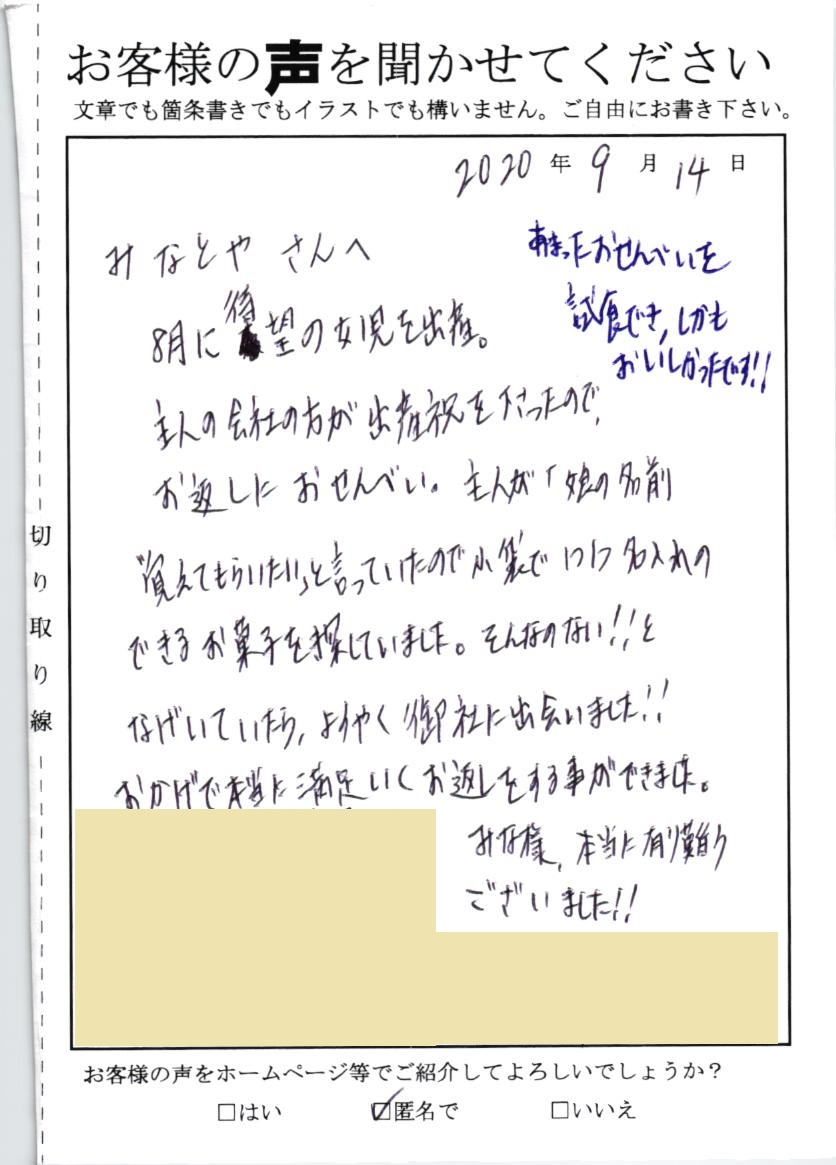 お客様の声を聞かせてください
文章でも箇条書きでもイラストでも構いません。ご自由にお書き下さい。
2020年9月14日
みなとや さんへ
8月に待望の女児を出産。
主人の会社の方が出産祝を下さったので、
お返しにおせんべい。主人が「娘の名前
覚えてもらいたい」と言っていたので小袋で1つ1つ名入れの
できるお菓子を探していました。そんなのない!!と
なげいていたら、ようやく御社に出会いました!!
おかげで本当に満足いくお返しをする事ができました。
みな様、本当に有り難う
ございました!!
余ったおせんべいを
試食でき、しかも
おいしかったです!!
切り取り線
お客様の声をホームページ等でご紹介してよろしいでしょうか？
□はい ☑匿名で □いいえ